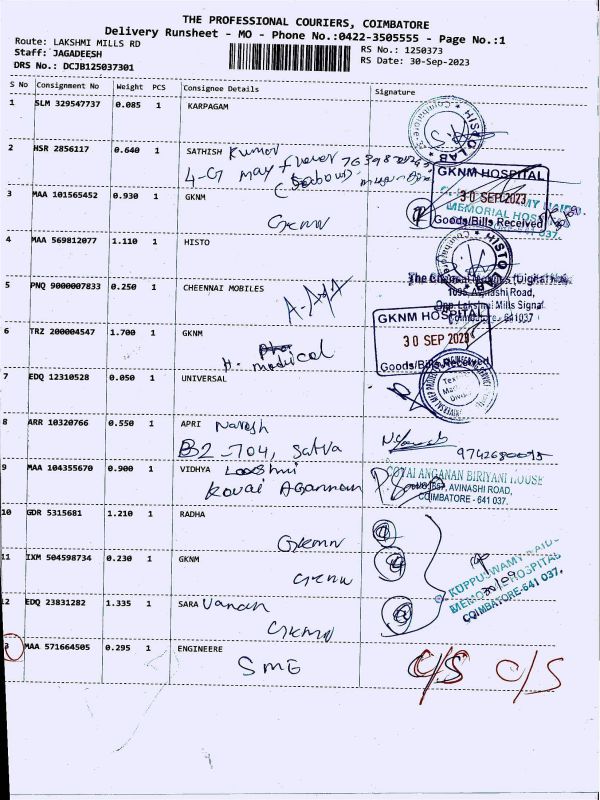 THE PROFESSIONAL COURIERS, COIMBATORE
Delivery Runsheet - MO - Phone No.:0422-3505555 - Page No.:1
Route: LAKSHMI MILLS RD
RS No.: 1250373
Staff: JAGADEESH
RS Date: 30-Sep-2023
DRS No.: DCJB125037301
S No Consignment No Weight PCS Consignee Details Signature
1 SLM 329547737 0.085 1 KARPAGAM
HISTO LAB
2 HSR 2856117 0.640 1 SATHISH Kumar
4-G7 May flower
GKNM HOSPITAL
3 MAA 101565452 0.930 1 GKNM
30 SEP 2023
MEMORIAL HOSPITAL
Goods/Bills Received
GKNM
4 MAA 569812077 1.110 1 HISTO
HISTO LAB
5 PNQ 9000007833 0.250 1 CHEENNAI MOBILES
1095, Avinashi Road,
Opp. Lakshmi Mills Signal
Coimbatore - 641037
6 TRZ 200004547 1.700 1 GKNM
GKNM HOSPITAL
30 SEP 2023
Goods/Bills Received
medical
7 EDQ 12310528 0.050 1 UNIVERSAL
8 ARR 10320766 0.550 1 APRI Naresh
B2-704, Satva
9742680095
9 MAA 104355670 0.900 1 VIDHYA Lakshmi
Kovai Agannan
KOVAI ANGANAN BIRIYANI HOUSE
AVINASHI ROAD,
COIMBATORE - 641 037.
10 GDR 5315681 1.210 1 RADHA
GKNM
11 IXM 504598734 0.230 1 GKNM
GKNM
KUPPUSWAMY NAIDU
MEMORIAL HOSPITAL
COIMBATORE-641 037.
12 EDQ 23831282 1.335 1 SARA Vanan
GKNM
13 MAA 571664505 0.295 1 ENGINEERE
SME
C/S C/S